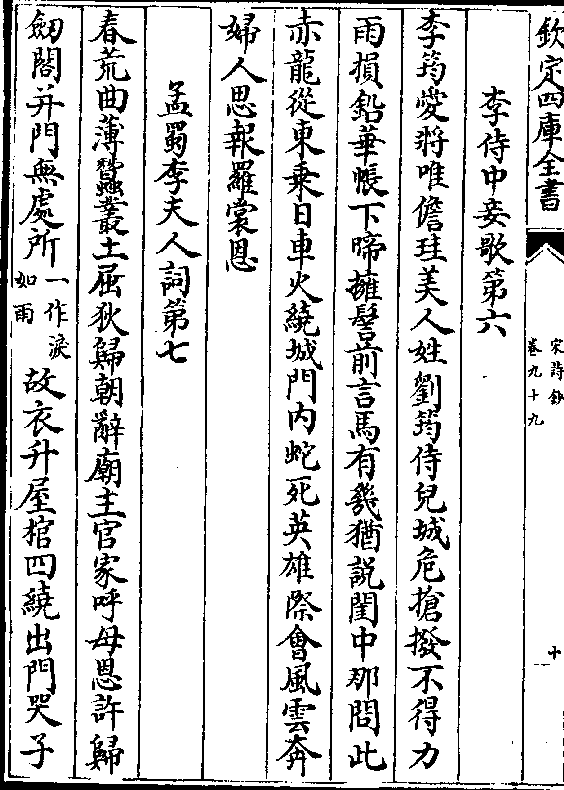 欽定四庫全書
宋詩鈔
卷九十九
十
李侍中妾歌第六
李筠愛將唯儋珪美人姓劉筠侍兒城危搶撥不得力
雨損鉛華帳下啼擁髻前言馬有幾猶說閨中那問此
赤龍從東乗日車火繞城門内蛇死英雄際會風雲奔
婦人思報羅裳恩
孟蜀李夫人詞第七
春荒曲薄蠶叢土屈狄歸朝辭廟主官家呼母恩許歸
劒閣并門無處所一作淚如雨故衣升屋棺四繞出門哭子